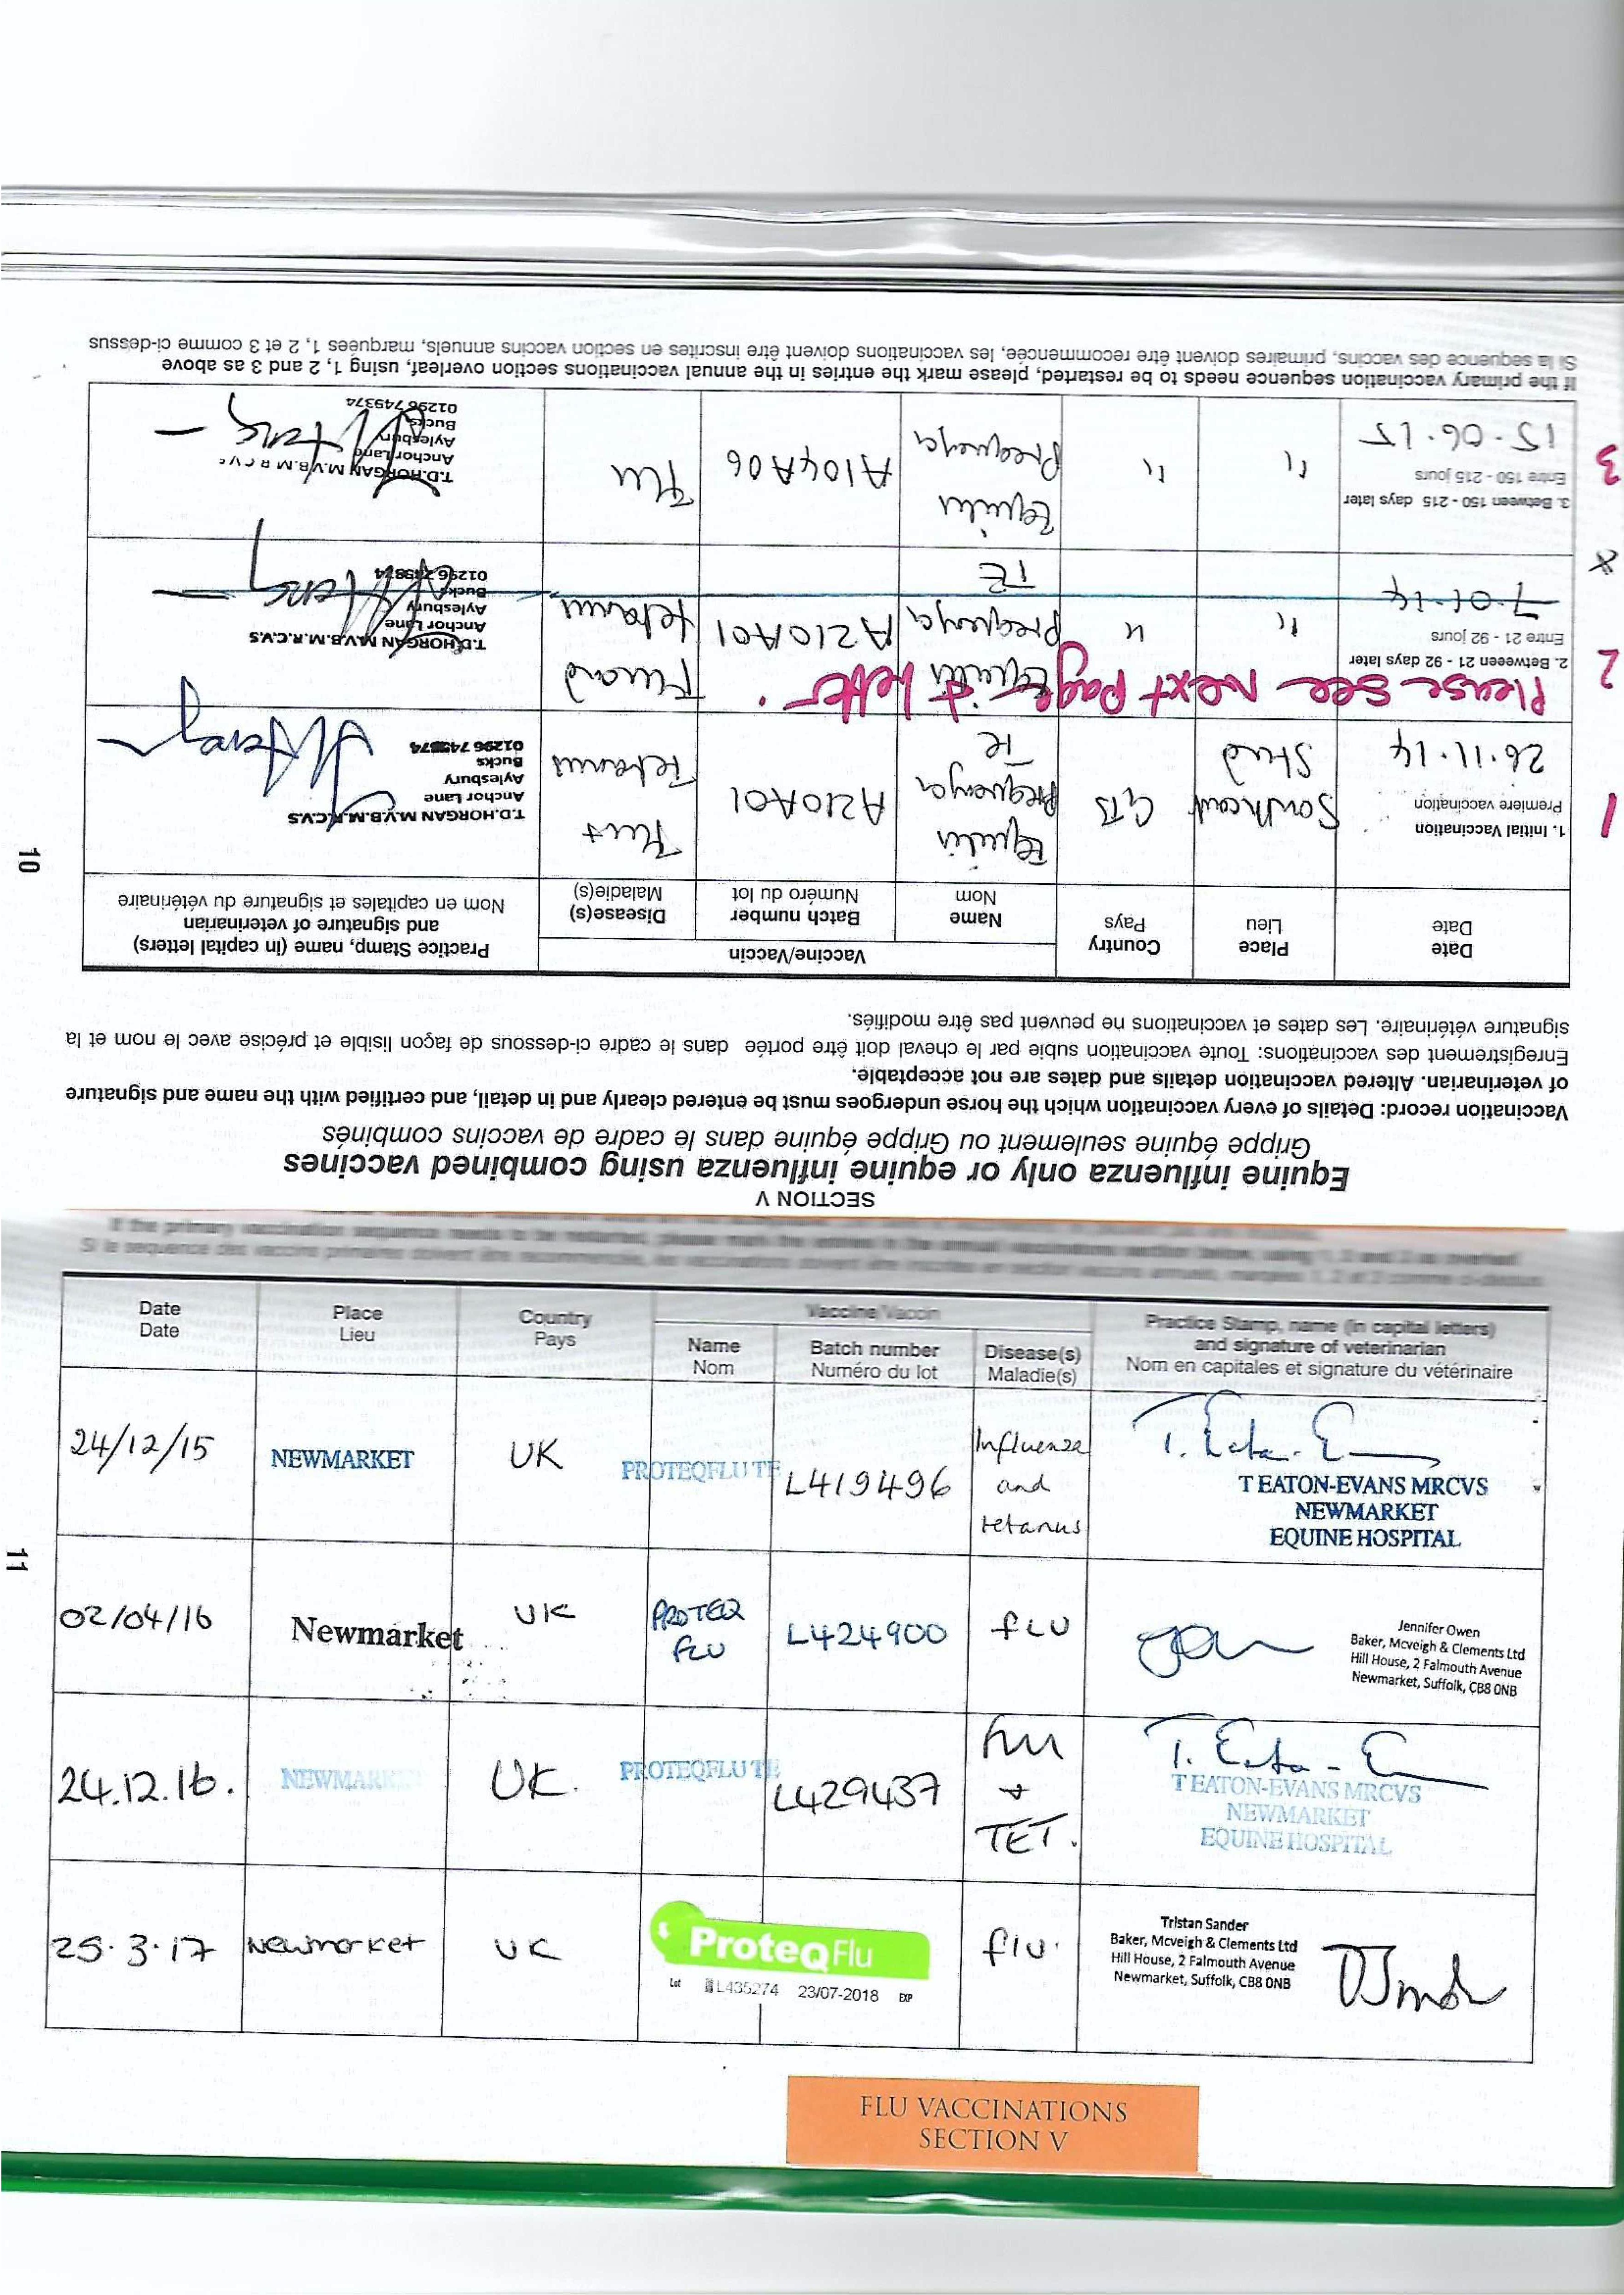 SECTION V
Equine influenza only or equine influenza using combined vaccines
Grippe équine seulement ou Grippe équine dans le cadre de vaccins combinés
Vaccination record: Details of every vaccination which the horse undergoes must be entered clearly and in detail, and certified with the name and signature
of veterinarian. Altered vaccination details and dates are not acceptable.
Enregistrement des vaccinations: Toute vaccination subie par le cheval doit être portée dans le cadre ci-dessous de façon lisible et précise avec le nom et la
signature vétérinaire. Les dates et vaccinations ne peuvent pas être modifiés.
Date
Date
Place
Lieu
Country
Pays
Vaccine/Vaccin
Name
Nom
Batch number
Numéro du lot
Disease(s)
Maladie(s)
Practice Stamp, name (in capital letters)
and signature of veterinarian
Nom en capitales et signature du vétérinaire
1
1. Initial Vaccination
Premiere vaccination
26.11.14
Southcourt
Stud
GB
Equilis
Prequenza
Te
A210A01
Flu +
Tetanus
T.D.HORGAN M.V.B.M.R.C.V.S
Anchor Lane
Aylesbury
Bucks
01296 749374
2
Please see next page + letter.
2. Betweeen 21 - 92 days later
Entre 21 - 92 jours
x
7.01.14
"
"
Equilis
Prequenza
TE
A210A01
Flu and
tetanus
T.D.HORGAN M.V.B.M.R.C.V.S
Anchor Lane
Aylesbury
Bucks
01296 749374
3
3. Between 150 - 215 days later
Entre 150 - 215 jours
15.06.15
"
"
Equilis
Prequenza
A104A06
Flu
T.D.HORGAN M.V.B.M.R.C.V.S
Anchor Lane
Aylesbury
Bucks
01296 749374
If the primary vaccination sequence needs to be restarted, please mark the entries in the annual vaccinations section overleaf, using 1, 2 and 3 as above
Si la séquence des vaccins, primaires doivent être recommencée, les vaccinations doivent être inscrites en section vaccins annuels, marquées 1, 2 et 3 comme ci-dessus
10
If the primary vaccination sequence needs to be restarted, please mark the entries in the annual vaccinations section below, using 1, 2 and 3 as overleaf
Si la sequence des vaccins primaires doivent être recommencée, les vaccinations doivent être inscrites en section vaccins annuels, marquées 1, 2 et 3 comme ci-dessus
Date
Date
Place
Lieu
Country
Pays
Vaccine/Vaccin
Name
Nom
Batch number
Numéro du lot
Disease(s)
Maladie(s)
Practice Stamp, name (in capital letters)
and signature of veterinarian
Nom en capitales et signature du vétérinaire
24/12/15
NEWMARKET
UK
PROTEQFLU TE
L419496
Influenza
and
tetanus
T. Eaton-E
T EATON-EVANS MRCVS
NEWMARKET
EQUINE HOSPITAL
02/04/16
Newmarket
UK
PROTEQ
FLU
L424900
FLU
Jennifer Owen
Baker, Mcveigh & Clements Ltd
Hill House, 2 Falmouth Avenue
Newmarket, Suffolk, CB8 0NB
24.12.16.
NEWMARKET
UK.
PROTEQFLU TE
L429437
Flu
+
TET.
T. Eaton-E
T EATON-EVANS MRCVS
NEWMARKET
EQUINE HOSPITAL
25.3.17
Newmarket
UK
ProteqFlu
Lot L435274 23/07-2018 EXP
flu.
Tristan Sander
Baker, Mcveigh & Clements Ltd
Hill House, 2 Falmouth Avenue
Newmarket, Suffolk, CB8 0NB
11
FLU VACCINATIONS
SECTION V